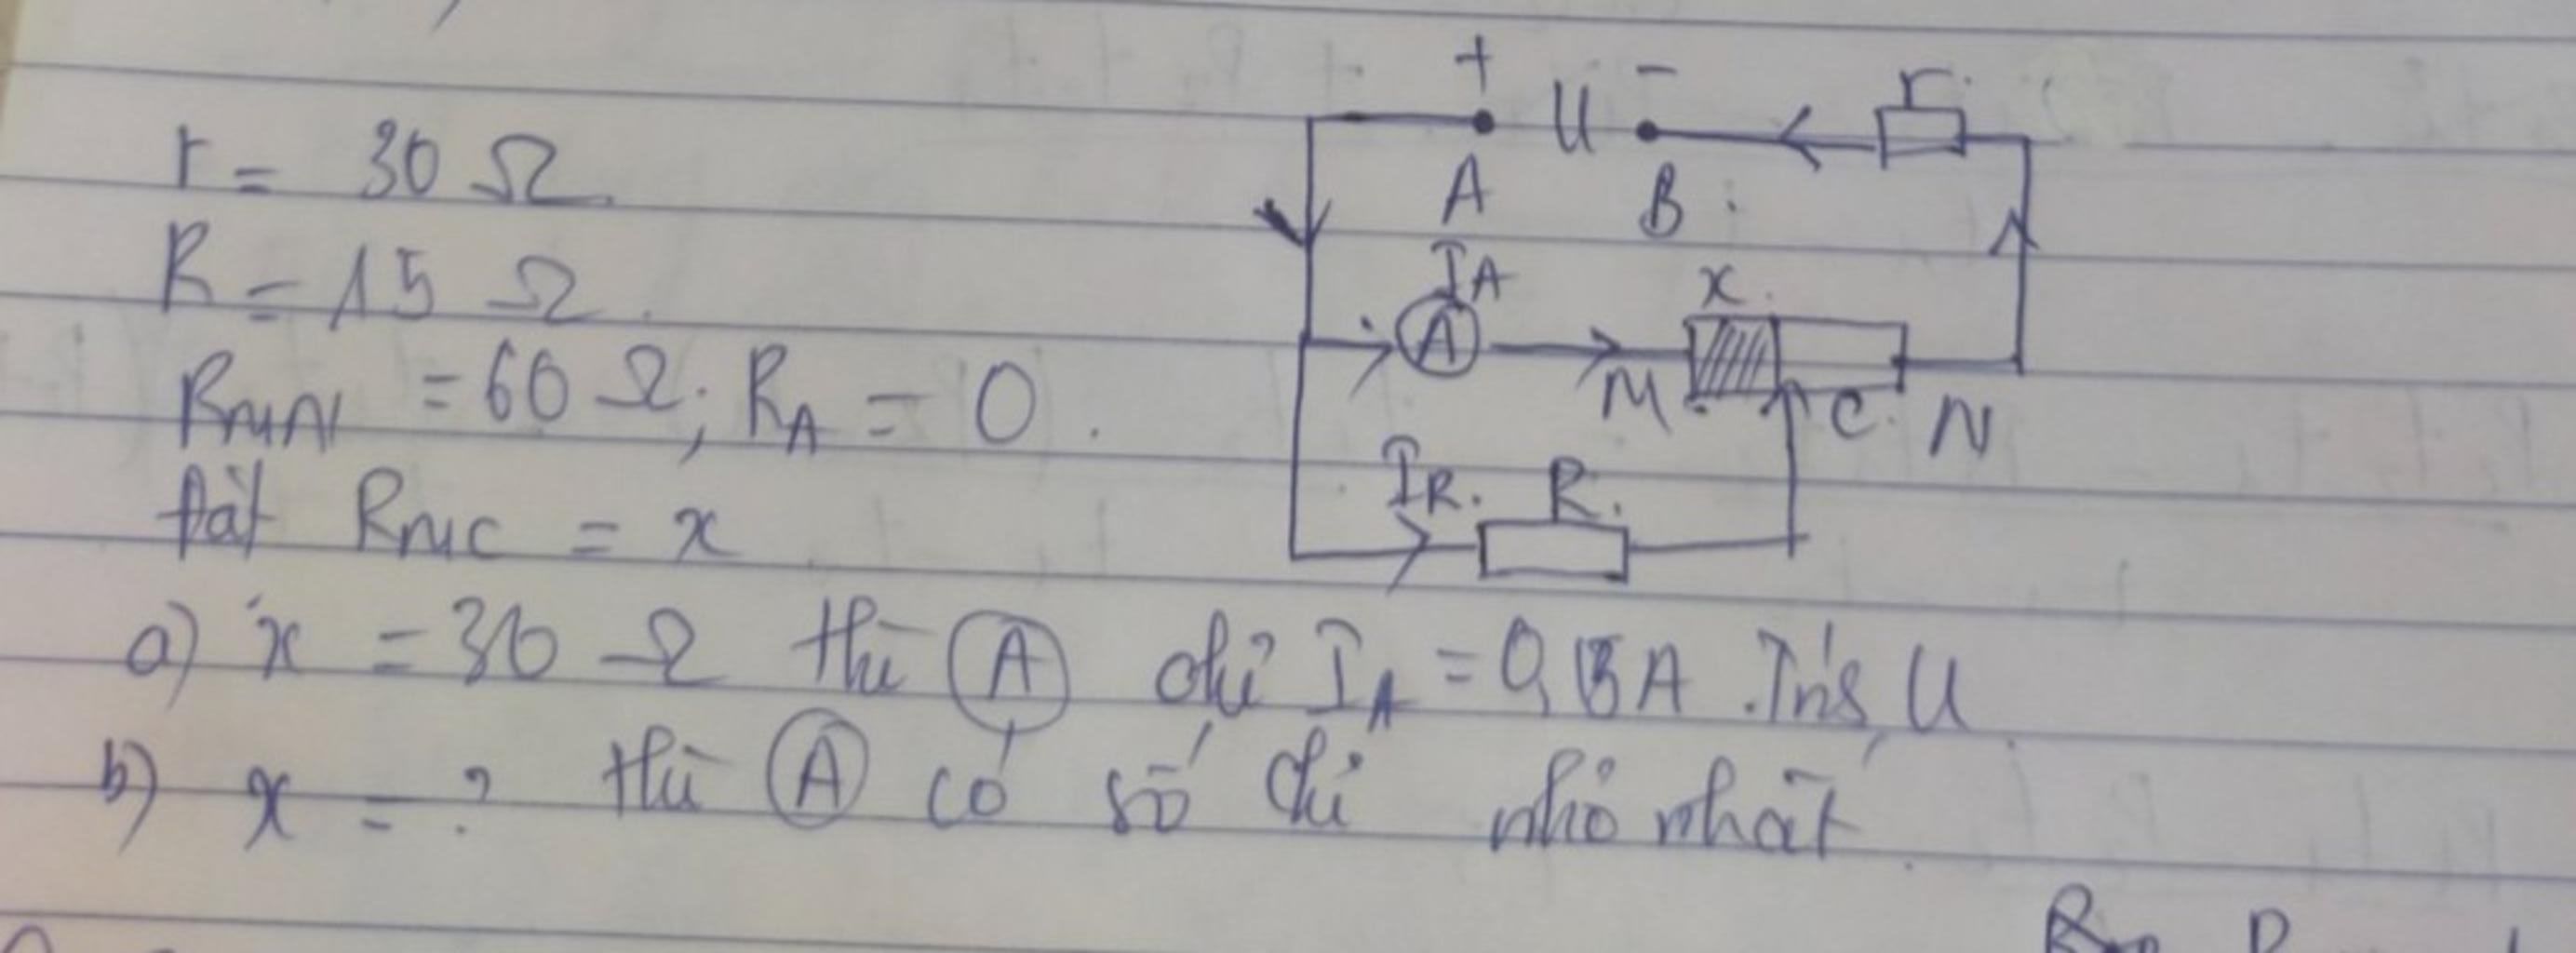 r = 30 Ω
R = 15 Ω
R_MN = 60 Ω; R_A = 0.
Đặt R_MC = x
+ U -
A B
r
I_A
A
x
M C N
I_R R
a) x = 30 Ω thì (A) chỉ I_A = A. Tính U
b) x = ? thì (A) có số chỉ nhỏ nhất